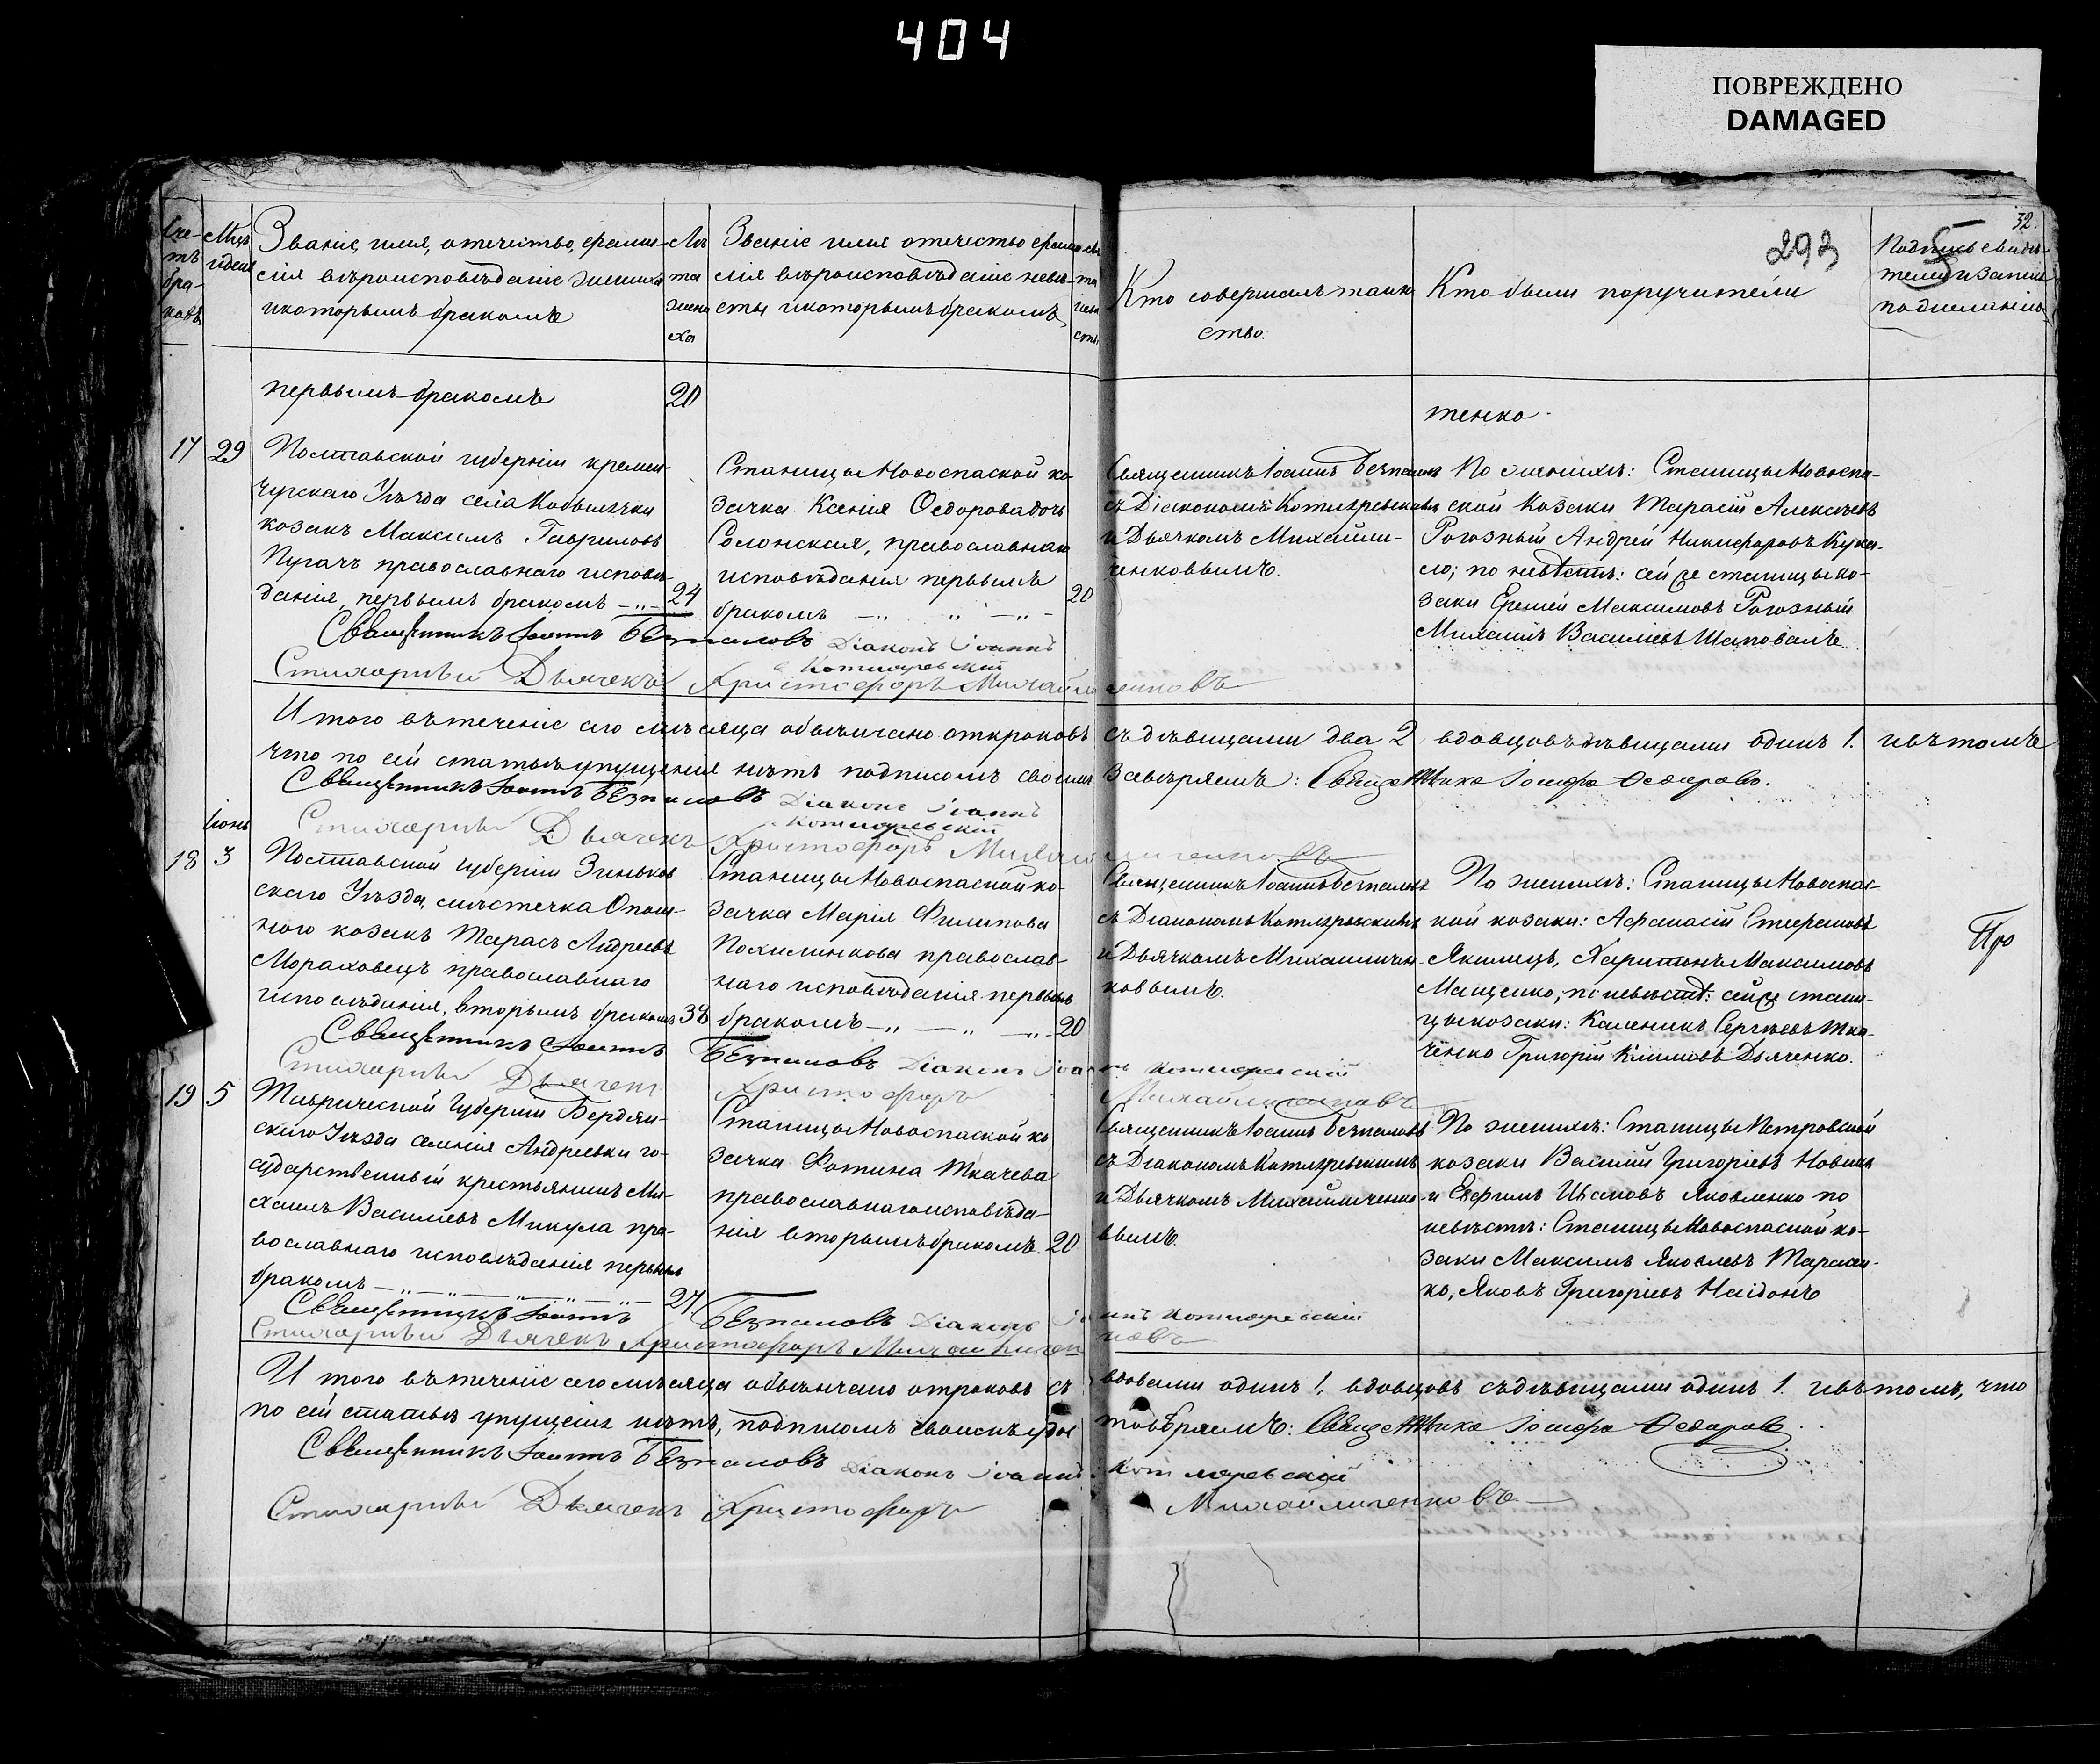 404
ПОВРЕЖДЕНО
DAMAGED
32.
293
5
Сче-
тъ
бра-
ковъ
Мцъ
и день
Званіе, имя, отечество, фами-
лія вѣроисповѣданіе жениха
и которымъ бракомъ
Лѣ
та
жени
ха
Званіе имя отечество фами
лія вѣроисповѣданіе невѣ-
сты и которымъ бракомъ
Кто совершалъ таин
ство.
Кто были поручители
Подпись свидѣ-
телей и записи
по желанію
первымъ бракомъ
20
тенко.
17
29
Полтавской губерніи кремен-
чугскаго Уѣзда села Кобылячки
козакъ Максимъ Гавриловъ
Пугачъ православнаго исповѣ-
данія, первымъ бракомъ
24
Станицы Новоспаской ко
зачка Ксенія Ѳедорова дочь
Солонская, православнаго
исповѣданія первымъ
бракомъ
20
Священникъ Іоаннъ Безпаловъ
съ Діакономъ Котляревскимъ
и Дьячкомъ Михайли-
ченковымъ.
По женихѣ: Станицы Новоспа-
ской Козаки Тарасій Алексѣевъ
Рогозный Андрей Никифоровъ Кука-
ло; по невѣстѣ: сей же станицы ко-
заки Еремей Максимовъ Рогозный
Михаилъ Василіевъ Шаповалъ
Священникъ Іоаннъ Безпаловъ Діаконъ Іоаннъ
Котляревскій
Стихарный Дьячекъ Христофоръ Михайличенковъ
Итого въ теченіе сего мѣсяца обвѣнчано отроковъ съ дѣвицами два 2 вдовцовъ съ дѣвицами одинъ 1. и въ томъ
что по сей статьѣ упущенія нѣтъ подписомъ своимъ завѣряемъ: Священникъ Іосифъ Ѳедоровъ.
Священникъ Іоаннъ Безпаловъ Діаконъ Іоаннъ
Котляревскій
Стихарный Дьячекъ Христофоръ Михайличенковъ
Іюнь
18
3
Полтавской губерніи Зиньков
скаго Уѣзда, мѣстечка Опош-
ного козакъ Тарасъ Андреевъ
Мораховецъ православнаго
исповѣданія, вторымъ бракомъ
38
Станицы Новоспаской ко-
зачка Марія Филипова
Похилинкова православ-
наго исповѣданія первымъ
бракомъ
20
Священникъ Іоаннъ Безпаловъ
съ Діакономъ Котляревскимъ
и Дьячкомъ Михайличен-
ковымъ.
По женихѣ: Станицы Новоспас-
кой козаки: Афанасій Стефановъ
Якимецъ, Харитонъ Максимовъ
Мащенко, по невѣстѣ: сей же стани-
цы козаки: Каленикъ Сергѣевъ Тка-
ченко Григорій Климовъ Дьяченко.
Про
Священникъ Іоаннъ Безпаловъ Діаконъ Іоаннъ Котляревскій
Стихарный Дьячекъ Христофоръ Михайличенковъ
19
5
Таврической Губерніи Бердян-
скаго Уѣзда селенія Андреевки го-
сударственный крестьянинъ Ми-
хаилъ Василіевъ Микула пра-
вославнаго исповѣданія первымъ
бракомъ
27
Станицы Новоспаской ко
зачка Фотина Ткачева
православнаго исповѣда-
нія вторымъ бракомъ.
20
Священникъ Іоаннъ Безпаловъ
съ Діакономъ Котляревскимъ
и Дьячкомъ Михайличенко-
вымъ.
По женихѣ: Станицы Петровской
козаки Василій Григоріевъ Новикъ
и Евфимъ Ивановъ Яковленко по
невѣстѣ: Станицы Новоспаской ко-
заки Максимъ Яковлевъ Тарасен-
ко, Яковъ Григоріевъ Найдонъ
Священникъ Іоаннъ Безпаловъ Діаконъ Іоаннъ Котляревскій
Стихарный Дьячекъ Христофоръ Михайличенковъ
И того въ теченіе сего мѣсяца обвѣнчано отроковъ съ вдовами одинъ 1, вдовцовъ съ дѣвицами одинъ 1. и въ томъ, что
по сей статьѣ упущенія нѣтъ, подписомъ своимъ удостовѣряемъ: Священникъ Іосифъ Ѳедоровъ.
Священникъ Іоаннъ Безпаловъ Діаконъ Іоаннъ Котляревскій
Стихарный Дьячекъ Христофоръ Михайличенковъ